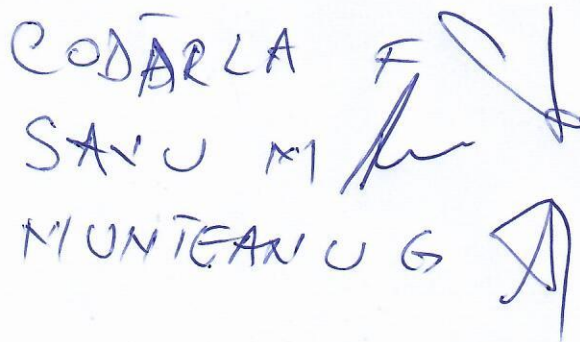 CODÂRLA F
SAVU M
MUNTEANU G